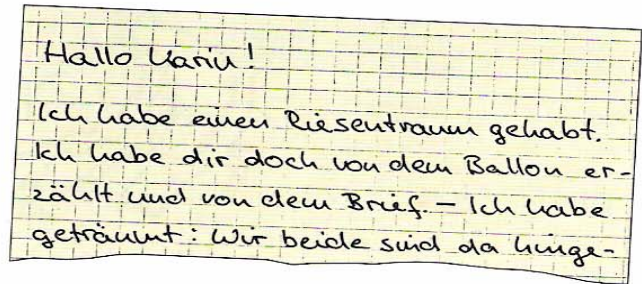 Hallo Karin!
Ich habe einen Riesentraum gehabt.
Ich habe dir doch von dem Ballon er-
zählt und von dem Brief. – Ich habe
geträumt: Wir beide sind da hinge-